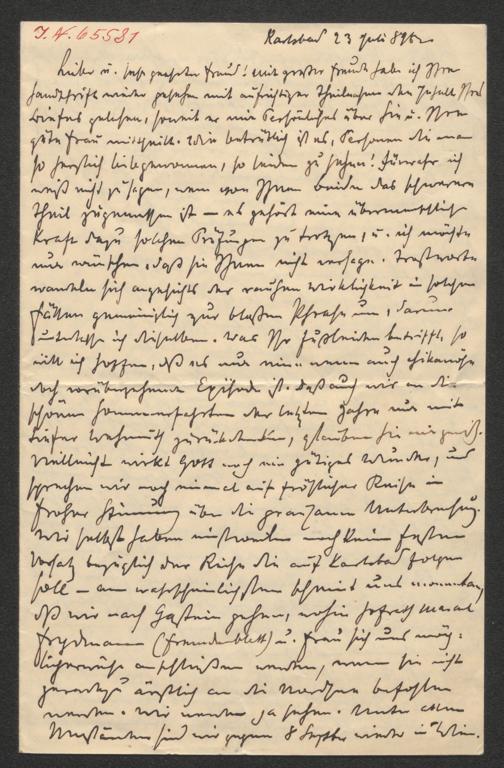 I. N. 65531
Karlsbad 23 Juli 895
Lieber u. sehr geehrter Freund! Mit großer Freude habe ich Ihre
Handschrift wieder gesehen mit aufrichtiger Theilnahme den Inhalt Ihres
Briefes gelesen, soweit er mir Persönliches über Sie u. Ihre
gute Frau mittheilt. Wie betrüblich ist es, Personen die man
so herzlich liebgewonnen, so leiden zu sehen! Fürwahr ich
weiß nicht zu sagen, wem von Ihnen beiden das schwerere
Theil zugemessen ist – es gehört eine übermenschliche
Kraft dazu solchen Prüfungen zu trotzen, u. ich möchte
nur wünschen, daß sie Ihnen nicht versage. Trostworte
wandeln sich angesichts der rauhen Wirklichkeit in solchen
Fällen gemeiniglich zur bloßen Phrase um, darum
unterlasse ich dieselben. Was Ihr Fußleiden betrifft, so
will ich hoffen, daß es nur eine wenn auch chikanöse
doch vorübergehende Episode ist. Daß auch wir an die
schönen Sommerfahrten der letzten Jahre nur mit
tiefer Wehmuth zurückdenken, glauben Sie mir gewiß.
Vielleicht wirkt Gott noch ein gütiges Wunder, und
sprechen wir noch einmal auf fröhlicher Reise in
froher Stimmung über die grausame Unterbrechung.
Wir selbst haben einstweilen noch keinen festen
Vorsatz bezüglich der Reise die auf Karlsbad folgen
soll – am wahrscheinlichsten scheint uns momentan,
daß wir nach Gastein gehen, wohin Hofrath
Frydmann (Fremdenblatt) u. Frau sich uns mög-
licherweise anschließen werden, wenn sie nicht
geradezu ärztlich an die Nordsee befohlen
werden. Wir werden ja sehen. Unter allen
Umständen sind wir gegen 8 Septber wieder in Wien.